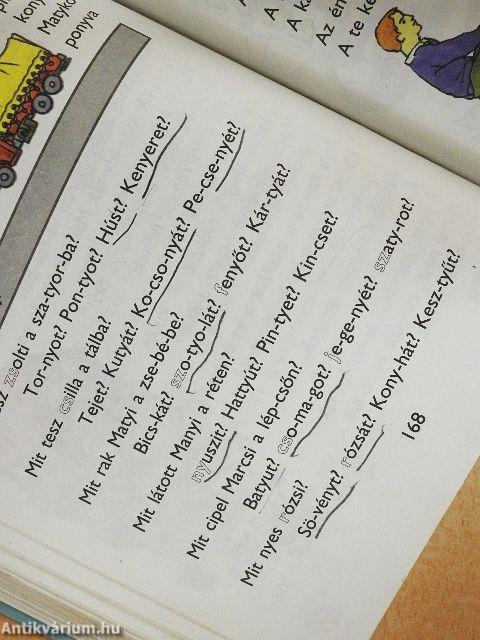 kony
Matykó
ponya
A
A ka
Az én
A te ke
sz zsolti a sza-tyor-ba?
Tor-nyot? Pon-tyot? Húst? Kenyeret?
Mit tesz csilla a tálba?
Tejet? Kutyát? Ko-cso-nyát? Pe-cse-nyét?
Mit rak Matyi a zse-bé-be?
Bics-kát? szo-tyo-lát? fenyőt? Kár-tyát?
Mit látott Manyi a réten?
nyuszit? Hattyút? Pin-tyet? Kin-cset?
Mit cipel Marcsi a lép-csőn?
Batyut? cso-ma-got? je-ge-nyét? szaty-rot?
Mit nyes rózsi?
Sö-vényt? rózsát? Kony-hát? Kesz-tyűt?
168
Antikvárium.hu